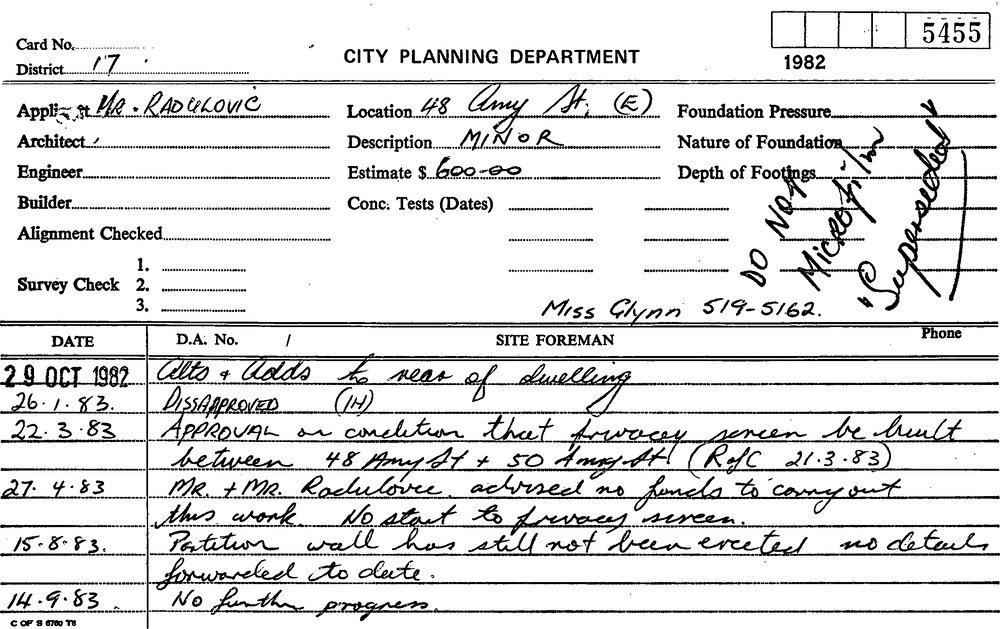 5455
Card No.
CITY PLANNING DEPARTMENT
1982
District 17
Applicant MR. RADULOVIC
Location 48 Amy St, (E)
Foundation Pressure
Architect
Description MINOR
Nature of Foundation
Engineer
Estimate $ 600-00
Depth of Footings
Builder
Conc. Tests (Dates)
Alignment Checked
DO NOT
Microfilm
"Superseded"
Survey Check
1.
2.
3.
Miss Glynn 519-5162.
DATE
D.A. No. /
SITE FOREMAN
Phone
29 OCT 1982 Alts + Adds to rear of dwelling
26.1.83. DISSAPPROVED (IH)
22.3.83 APPROVAL on condition that privacey screen be built
between 48 Amy St + 50 Amy St (RofC 21.3.83)
27.4.83 Mr. + Mr. Radulovic advised no funds to carry out
this work. No start to privacy screen.
15.8.83. Partition wall has still not been erected no details
forwarded to date.
14.9.83. No further progress.
C OF S 6760 T6